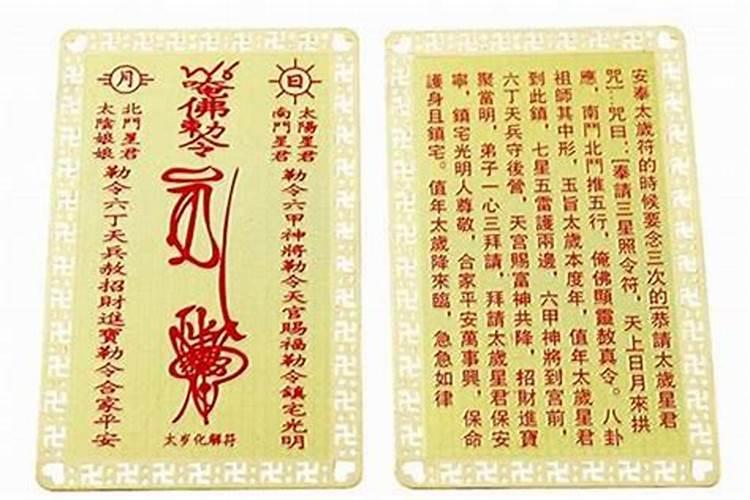 日
太陽星君
南鬥星君
勒令六甲神將勒令天官賜福勒令鎮宅光明
唵佛勅令
太岁化解符
月
北鬥星君
太陰娘娘
勒令六丁天兵赦招財進寶勒令合家平安
安奉太歲符的時候要念三次的[恭請太歲星君
咒]…咒曰：[奉請三星照令符，天上日月來拱
應，南鬥北鬥推五行，俺佛顯靈敖真令。八卦
祖師其中形，玉旨太歲本度年，值年太歲星君
到此鎮，七星五雷護兩邊，六甲神將到宮前，
六丁天兵守後營，天官賜富神共降，招財進寶
聚當明，弟子一心三拜請，拜請太歲星君保安
寧，鎮宅光明人尊敬，合家平安萬事興，保命
護身且鎮宅。值年太歲降來臨，急急如律